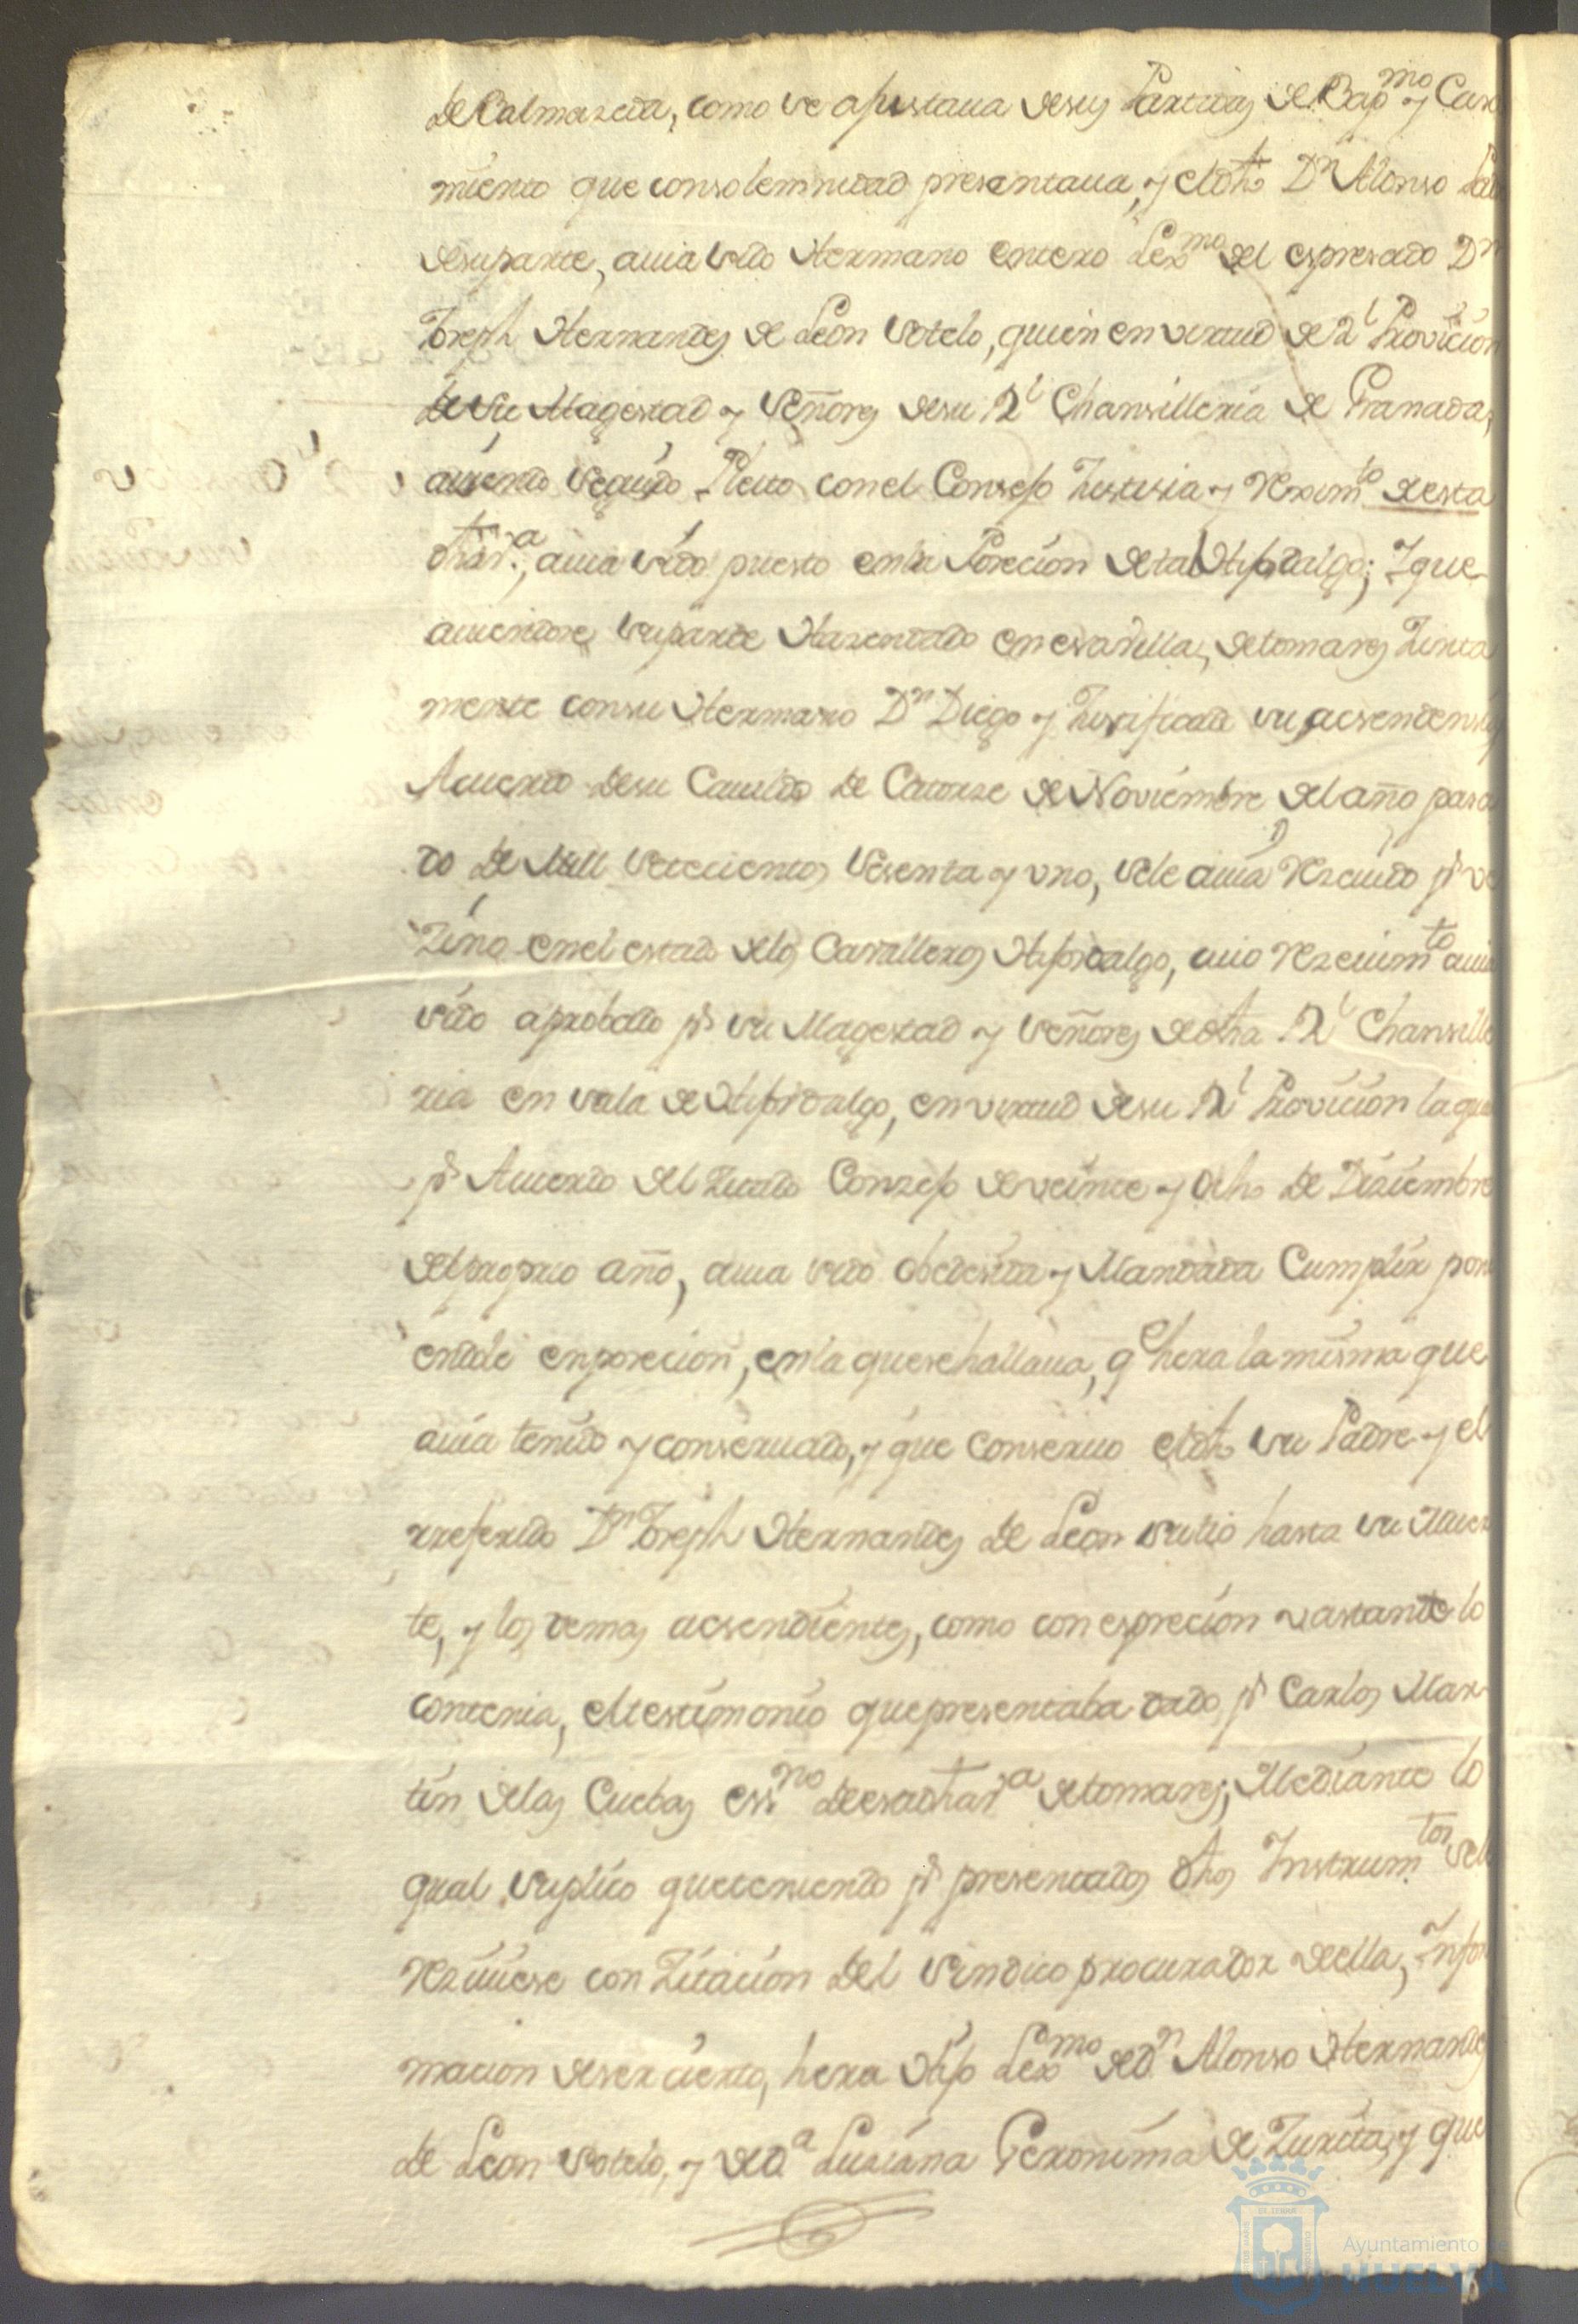 de Calmaseda, como se ajustaua desus Partidas de Bapmo y Casa
miento que consolemnidad presentaua, y eldho Dn Alonso Padre
desuparte, auia sido Hermano entero Lexmo del espresado Dn
Joseph Hernandes de Leon Sotelo, quien en virtud de Rl Provicion
de Su Magestad y Señores desu Rl Chansilleria de Granada,
auiendo seguido Pleito conel Consejo Justisia y Reximto desta
dha va, auia sido puesto enla Posecion de tal Hijodalgo; Y que
auiendose suparte Hasendado en esa villa, de tomares Junta
mente consu Hermano Dn Diego y Justificada su acsendensia
Acuerdo desu Cauildo de Catorse de Noviembre del año pasa
do de Mill setecientos sesenta y uno, sele auia Rezeuido pr ve
zino enel estado delos Cavalleros Hijosdalgo, cuio Rezeuimto auia
sido aprobado pr su Magestad y señores de dha Rl Chansille
ria en sala de Hijosdalgo, en virtud desu Rl Provicion la qual
pr Acuerdo del zitado Conzejo de veinte y ocho de Diziembre
delpropio año, auia sido obedesida y Mandada Cumplir poni
endole enposecion, en la quesehallaua, qe hera la misma que
auia tenido y conseruado, y que conseruo eldho su Padre y el
rreferido Dn Joseph Hernandes de Leon sutio hasta su Muer
te, y los demas acsendientes, como con esprecion vastante lo
contenia, eltestimonio quepresentaba dado pr Carlos Mar
tin delas Cuebas essno deesadha va detomares; Mediante lo
qual suplico queteniendo pr presentados dhos Instrumtos sele
Reziuiese con zitacion del sindico procurador deella, Infor
macion deser cierto, hera Hijo Lexmo de Dn Alonso Hernandes
de Leon Sotelo, y de Da Lusiana Geronima de Zurita, y que
Ayuntamiento de
HUELVA